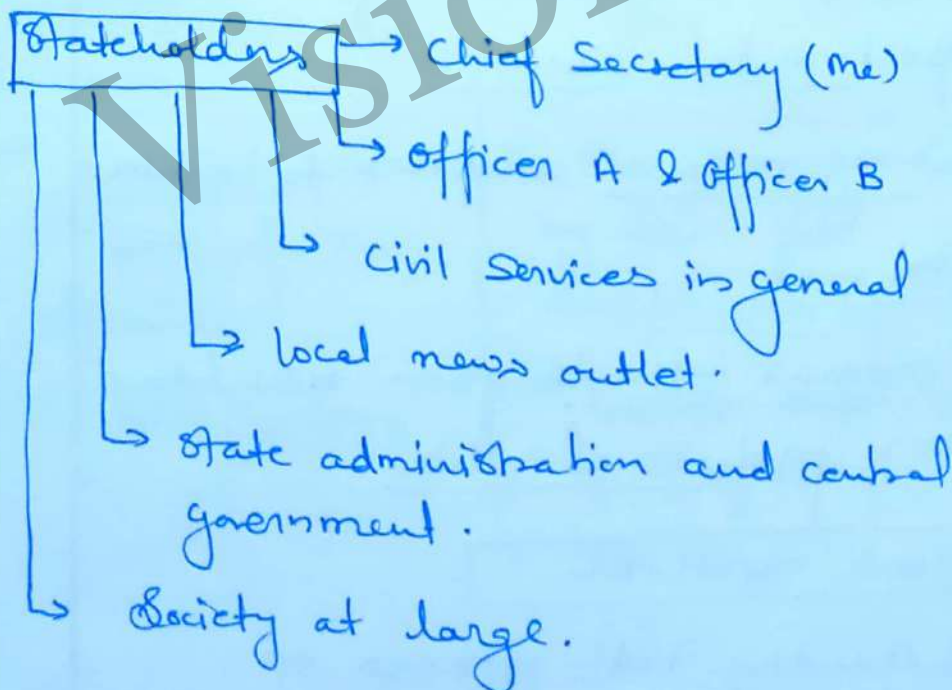 Stakeholders → Chief Secretary (me)
→ Officer A & Officer B
→ Civil Services in general
→ local news outlet.
→ State administration and central
government.
→ Society at large.
Vision